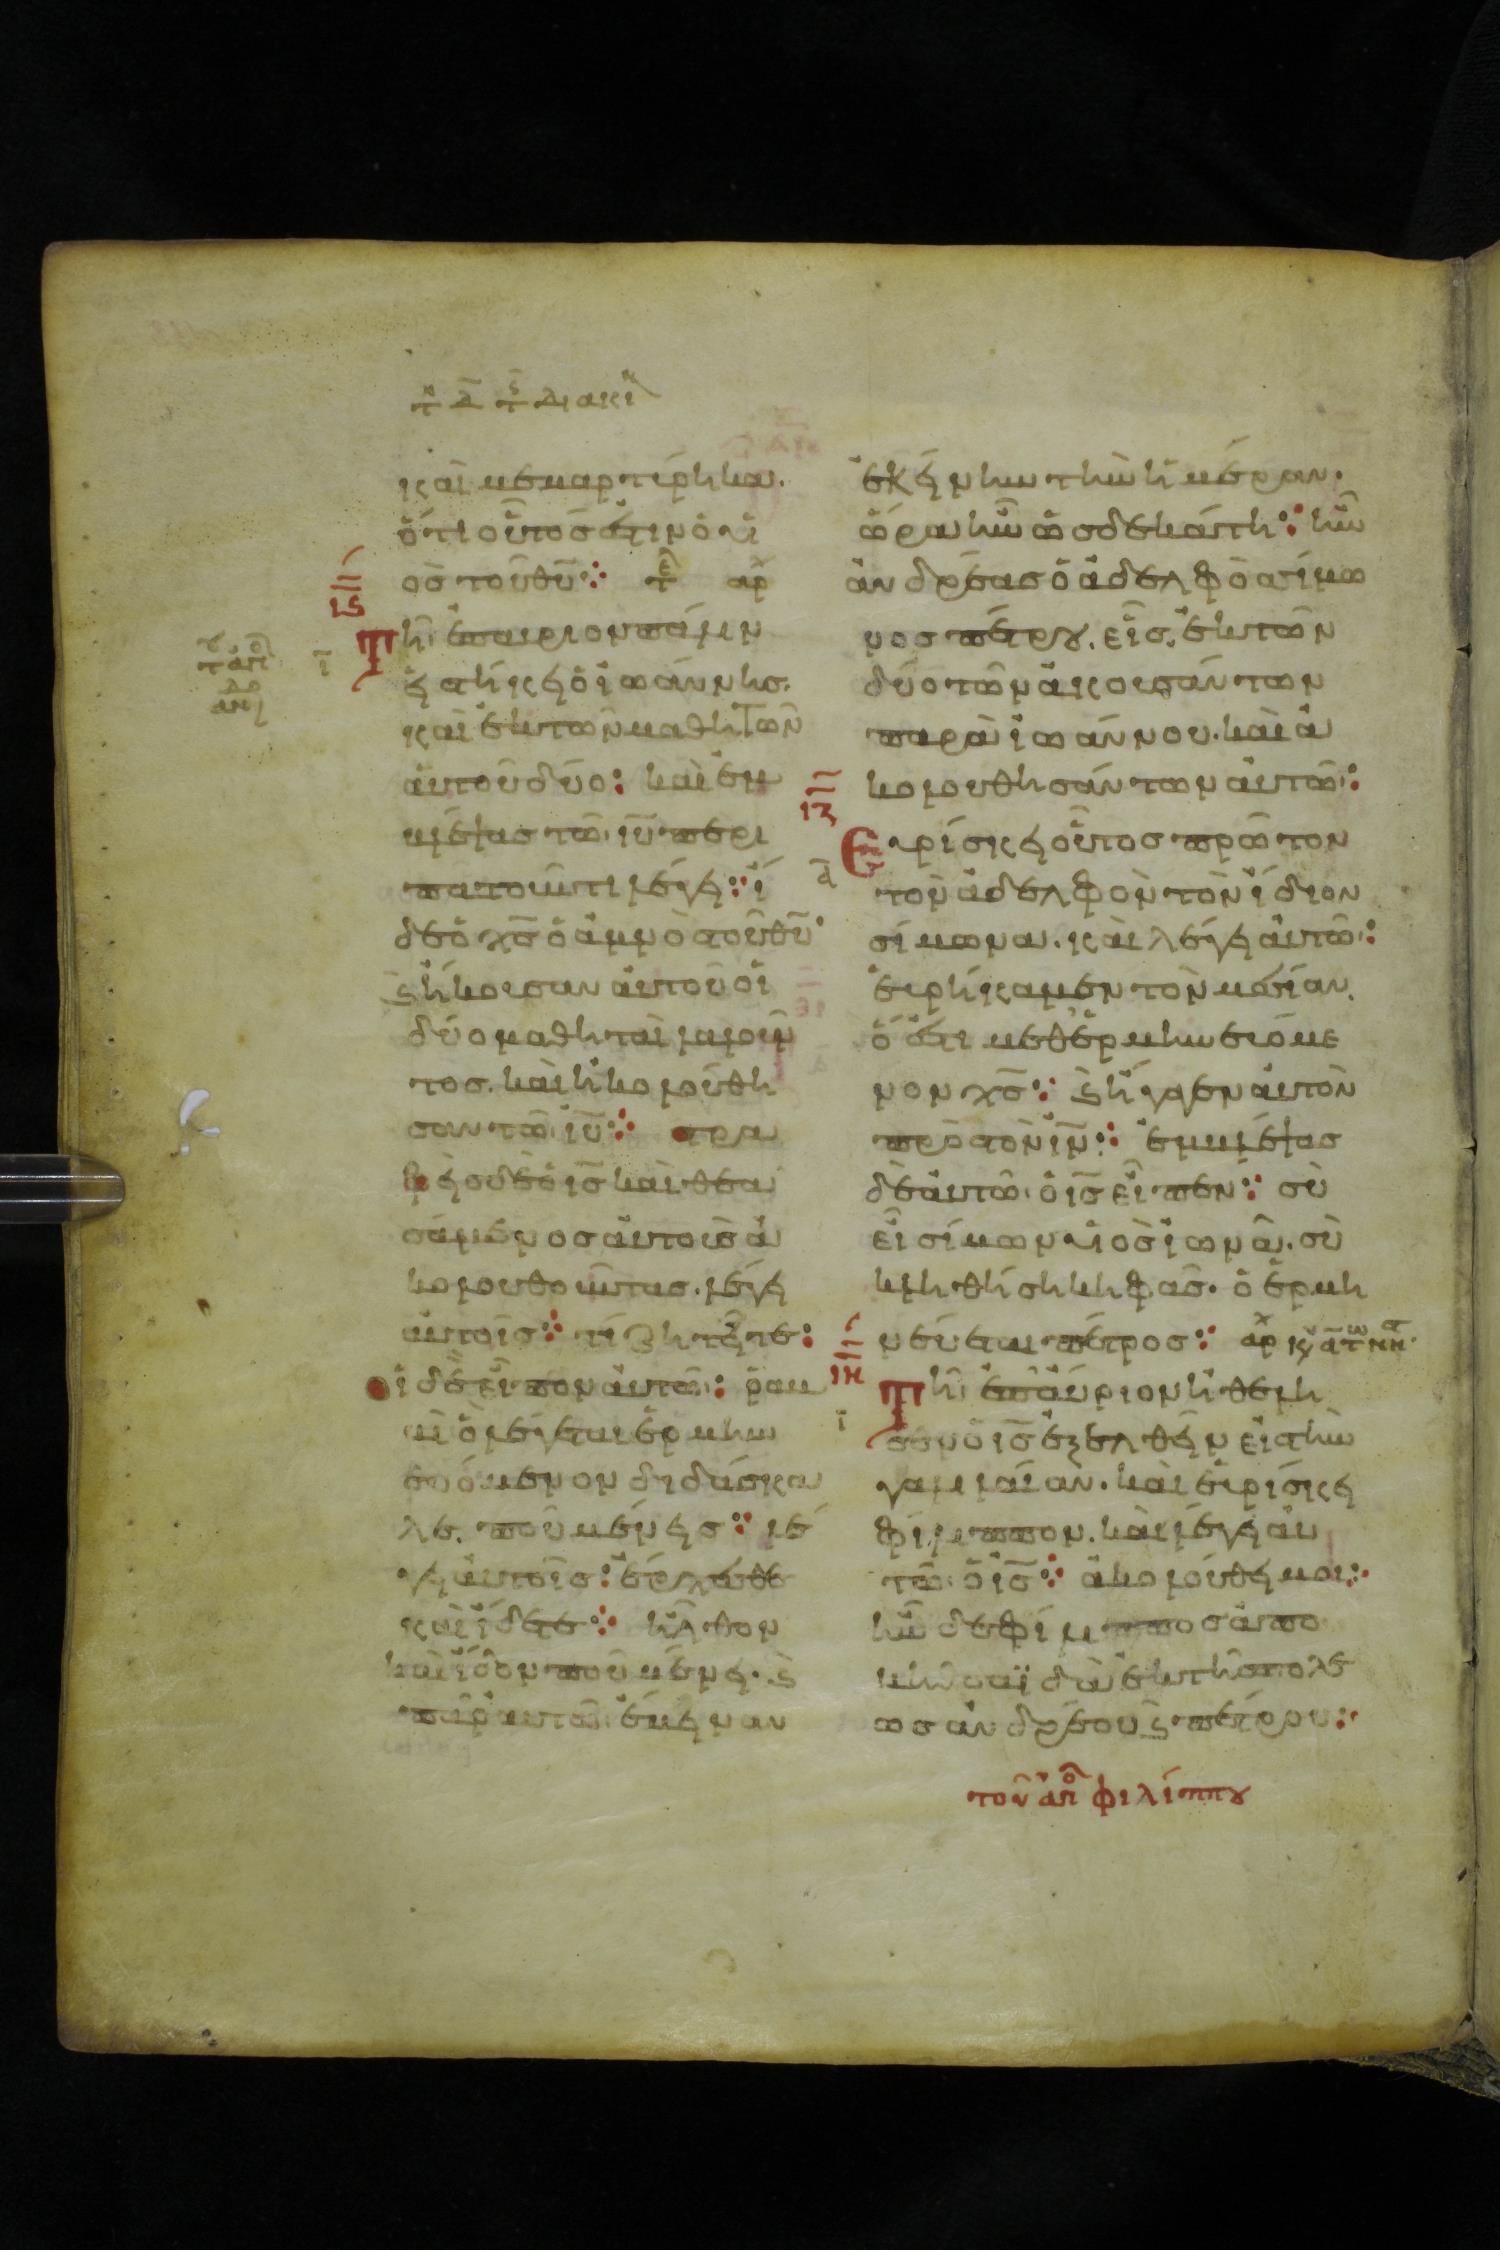 τῇ δ τῆς διακι
καὶ μεμαρτύρηκα.
ὅτι οὗτός ἐστιν ὁ υἱ
ὸς τοῦ θῦ· τε αρχ
ις
Τῆ ἐπαύριον πάλιν
εἱστήκει ὁ ἰωάννης.
καὶ ἐκ τῶν μαθητῶν
αὐτοῦ δύο: καὶ ἐμ
βλέψας τῶ ιῦ περι
πατοῦντι λέγει· ἴ
δε ὁ χς ὁ ἀμνὸς τοῦ θῦ·
ϗ ἤκουσαν αὐτοῦ οἱ
δύο μαθηταὶ λαλοῦν
τος. καὶ ἠκολούθη
σαν τῶ ιῦ· στρα
φεὶς δὲ ὁ ις καὶ θεα
σάμενος αὐτοὺς ἀ
κολουθοῦντας. λέγει
αὐτοῖς· τί ζητεῖτε:
οἱ δὲ εἶπον αὐτῶ: ραβ
βὶ ὃ λέγεται ἑρμην
ευόμενον διδάσκα
λε. ποῦ μένεις· λέ
γει αὐτοῖς: ἔρχεσθε
καὶ ἴδετε· ἦλθον
καὶ ἴδον ποῦ μένει. ϗ
παρ' αὐτῶ ἔμειναν
ἐκείνην τὴν ἡμέραν.
ὥρα ἦν ὡς δεκάτη· ἦν
ἀνδρέας ὁ ἀδελφὸς σίμω
νος πέτρου. εἷς ἐκ τῶν
δύο τῶν ἀκουσάντων
παρὰ ἰωάννου. καὶ ἀ
κολουθησάντων αὐτῶ:
ιζ
Εὑρίσκει οὗτος πρῶτον
τὸν ἀδελφὸν τὸν ἴδιον
σίμωνα. καὶ λέγει αὐτῶ:
εὑρήκαμεν τὸν μεσίαν.
ὅ ἐστι μεθερμηνευόμε
νον χς· ϗ ἤγαγεν αὐτὸν
πρὸς τὸν ιν· ἐμβλέψας
δὲ αὐτῶ ὁ ις εἶπεν· σὺ
εἶ σίμων υἱὸς ἰωνᾶ. σὺ
κληθήση κηφᾶς. ὃ ἑρμη
νεύεται πέτρος· αρχ κυ α τῶν
ιη
Τῆ ἐπαύριον ἠθέλη
σεν ὁ ις ἐξελθεῖν εἰς τὴν
γαλιλαίαν. καὶ εὑρίσκει
φίλιππον. καὶ λέγει αὐ
τῶ ὁ ις· ἀκολούθει μοι:
ἦν δὲ φίλιππος ἀπὸ
βηθσαϊδὰ ἐκ τῆς πόλε
ως ἀνδρέου ϗ πέτρου:
τοῦ ἀπο φιλίππου